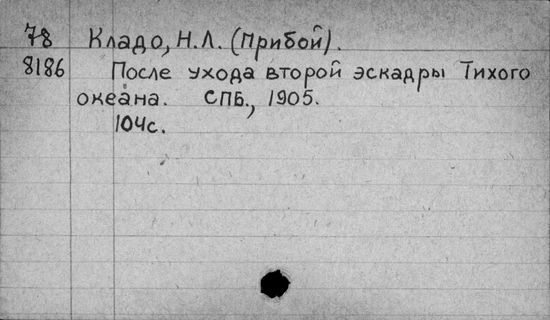 78 Кладо, Н.Л. (Прибой).
8186 После ухода второй эскадры Тихого
океана. СПБ., 1905.
104с.